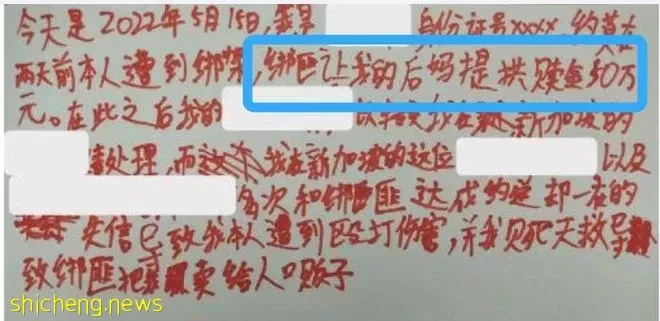 今天是2022年5月15日,我是 身份证号xxxx,约莫在
两天前本人遭到绑架,绑匪让我的后妈提供赎金50万
元。在此之后我的 在新加坡的
处理,而 我在新加坡的这位 以及
多次和绑匪达成约定却一在的
失信已致我本人遭到殴打伤害,并我见死不救导
致绑匪把我卖给人口贩子
shicheng.news